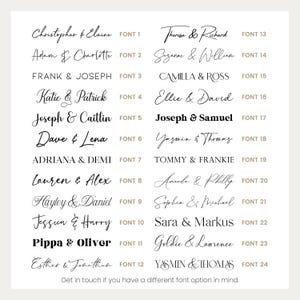 Christopher & Elaine FONT 1
Adam & Charlotte FONT 2
FRANK & JOSEPH FONT 3
Katie & Patrick FONT 4
Joseph & Caitlin FONT 5
Dave & Lena FONT 6
ADRIANA & DEMI FONT 7
Lauren & Alex FONT 8
Hayley & Daniel FONT 9
Jessica & Harry FONT 10
Pippa & Oliver FONT 11
Esther & Jonathan FONT 12
Thomas & Richard FONT 13
Suzanne & William FONT 14
CAMILLA & ROSS FONT 15
Ellie & David FONT 16
Joseph & Samuel FONT 17
Yasmin & Thomas FONT 18
TOMMY & FRANKIE FONT 19
Amanda & Philly FONT 20
Sophia & Michael FONT 21
Sara & Markus FONT 22
Goldie & Lawrence FONT 23
YASMIN & THOMAS FONT 24
Get in touch if you have a different font option in mind